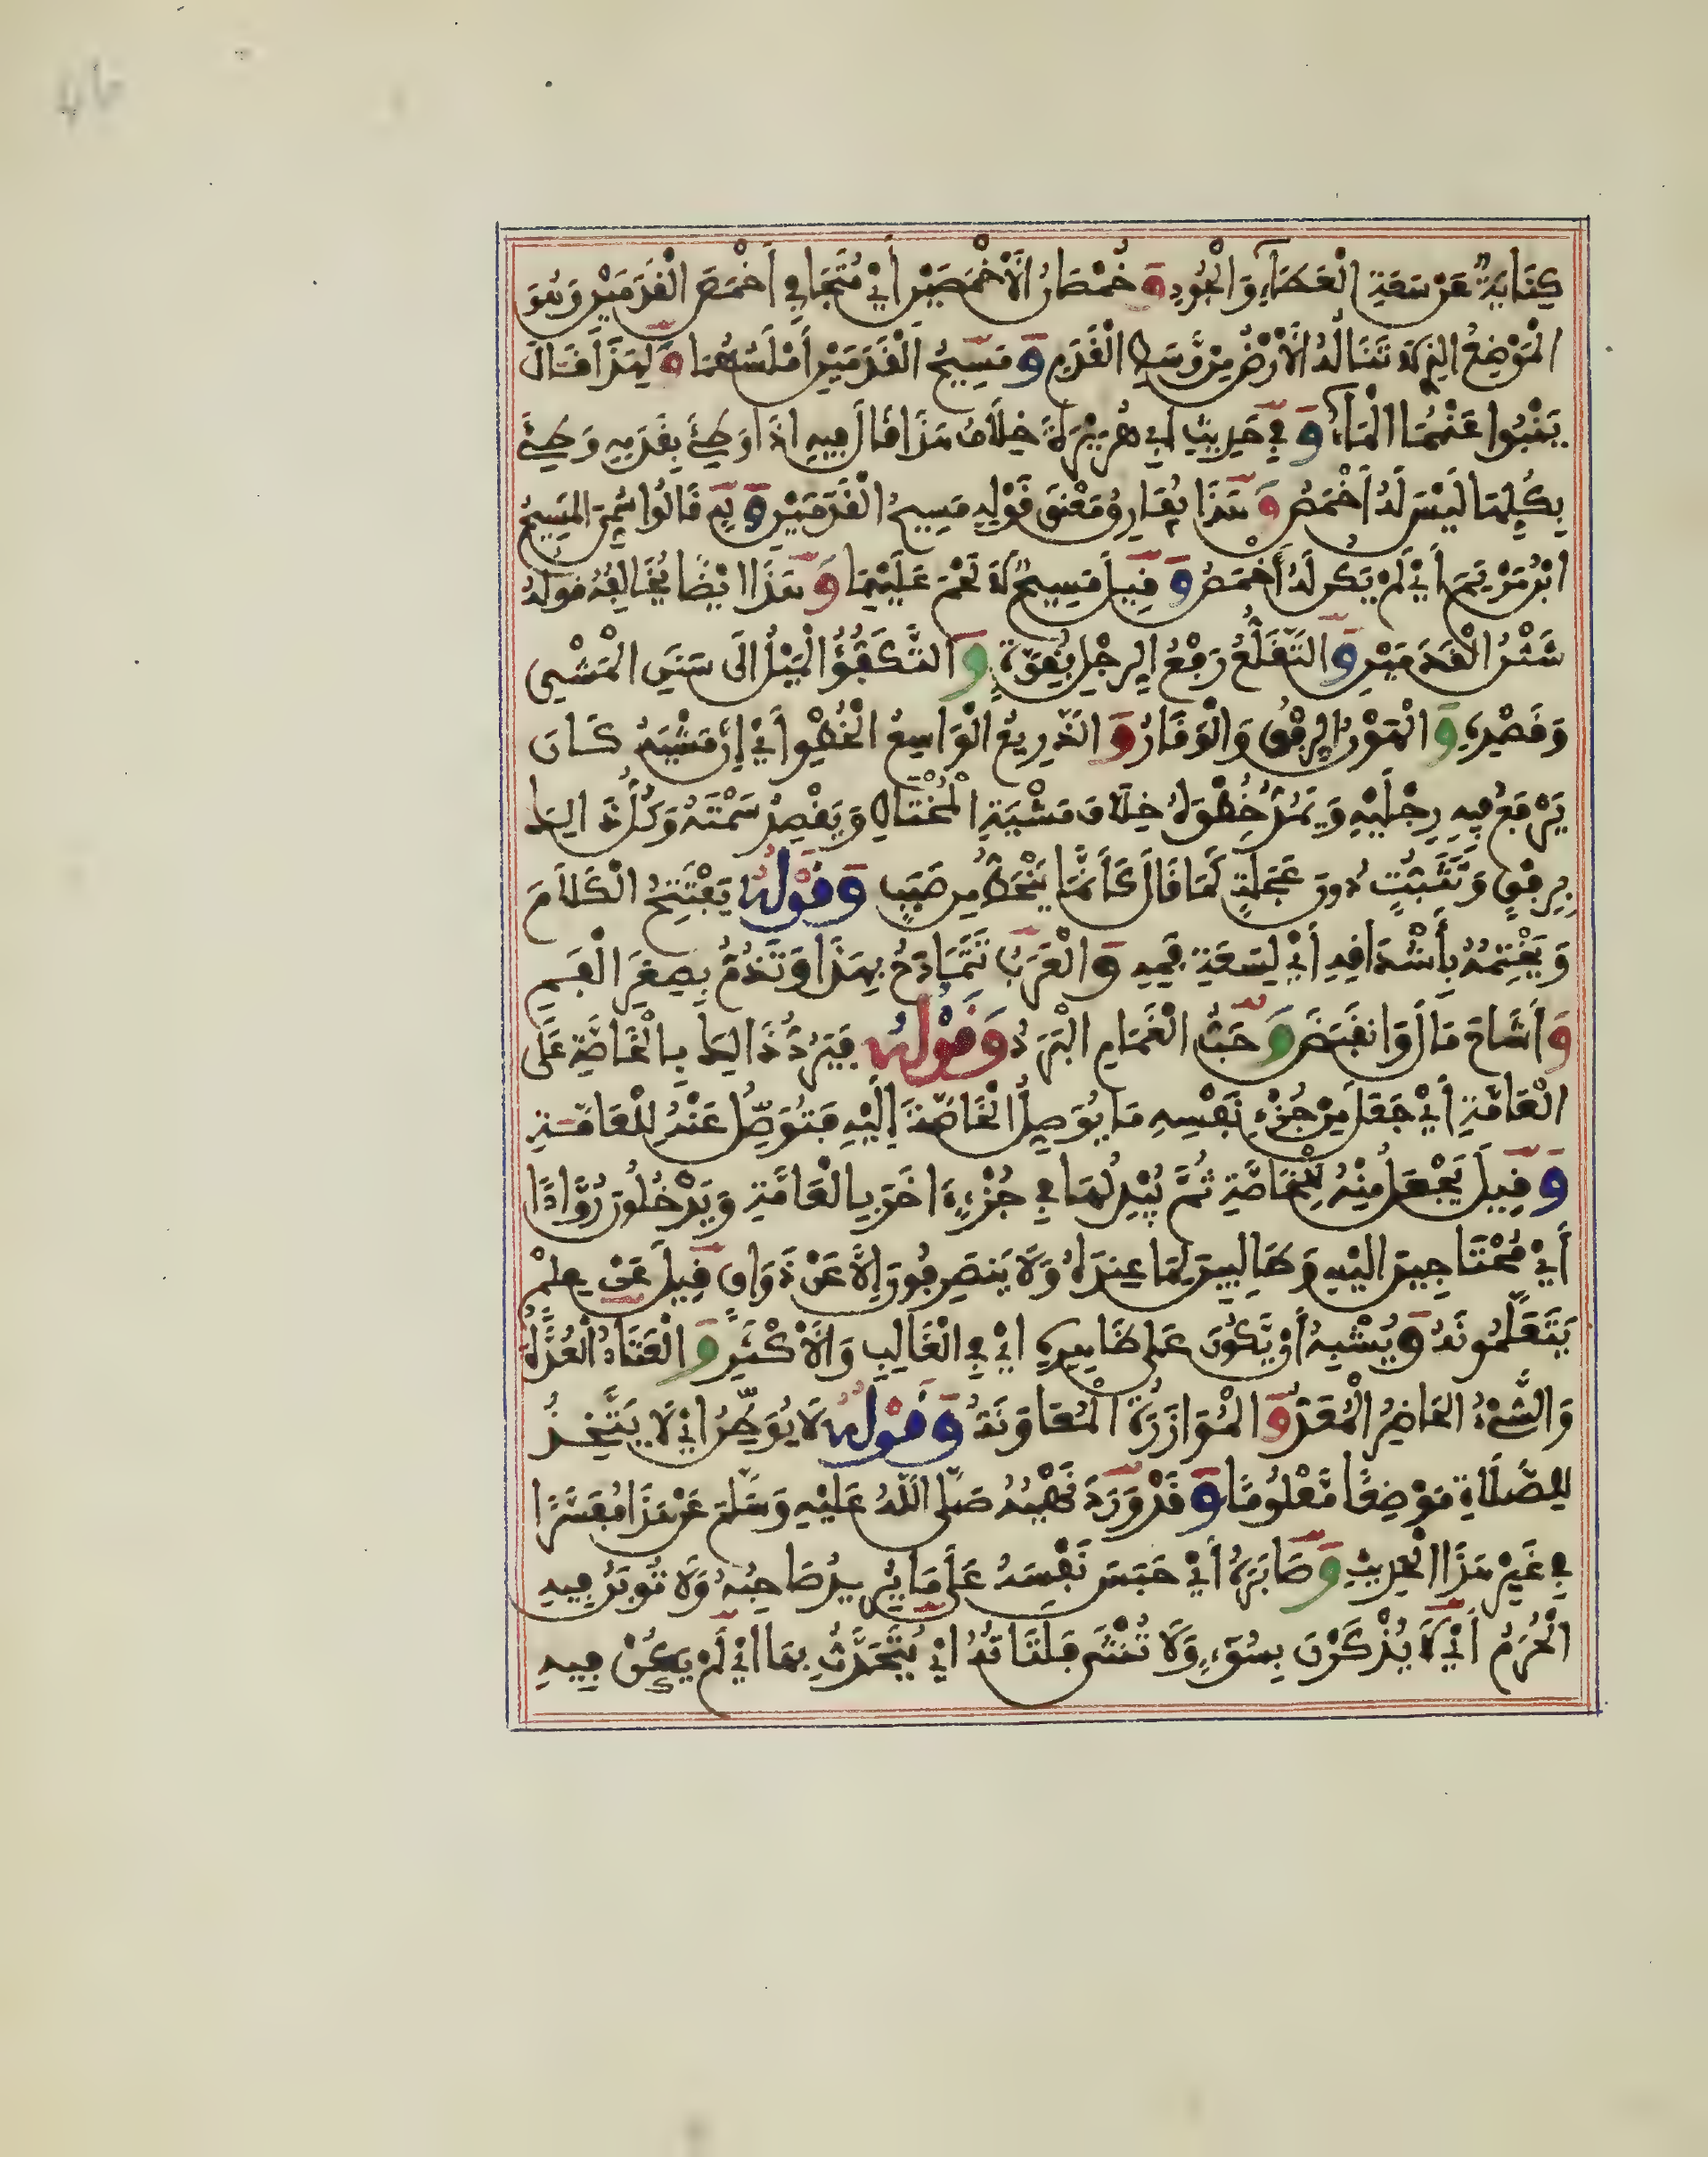 كِنَايَةٌ عَنْ سَعَةِ الْعَطَاءِ وَالْجُودِ وَخُمْصَانُ الْأَخْمَصَيْنِ أَيْ مُتَجَافِي أَخْمَصِ الْقَدَمَيْنِ وَهُوَ
الْمَوْضِعُ الذِي لَا تَنَالُهُ الْأَرْضُ مِنْ وَسَطِ الْقَدَمِ وَمَسِيحُ الْقَدَمَيْنِ أَمْلَسُهُمَا وَلِهَذَا قَالَ
يَنْبُوا عَنْهُمَا الْمَاءُ وَفِي حَدِيثِ أَبِي هُرَيْرَةَ خِلَافُ هَذَا قَالَ فِيهِ إذَا وَطِئَ بِقَدَمِهِ وَطِئَ
بِكُلِّهَا لَيْسَ لَهُ أَخْمَصُ وَهَذَا يُوَافِقُ مَعْنَى قَوْلِهِ مَسِيحُ الْقَدَمَيْنِ وَبِهِ قَالُوا سُمِّيَ الْمَسِيحُ
ابْنُ مَرْيَمَ أَيْ لَمْ يَكُنْ لَهُ أَخْمَصُ وَقِيلَ مَسِيحٌ لَا لَحْمَ عَلَيْهِمَا وَهَذَا أَيْضًا يُخَالِفُهُ قَوْلُهُ
شَثْنُ الْقَدَمَيْنِ وَالتَّقَلُّعُ رَفْعُ الرِجْلِ بِقُوَّةٍ وَالتَّكَفُّؤُ الْمَيْلُ إلَى سَنَنِ الْمَشْيِ
وَقَصْدِهِ وَالْهَوْنُ الرِفْقُ وَالْوَقَارُ وَالذَّرِيعُ الْوَاسِعُ الْخُطْوِ أَيْ إنَّ مَشْيَهُ كَانَ
يَرْفَعُ فِيهِ رِجْلَيْهِ وَيَمُدُّ خُطْوَهُ خِلَافَ مَشْيَةِ الْمُخْتَالِ وَيَقْصِدُ سَمْتَهُ وَكُلُّ ذَالِكَ
بِرِفْقٍ وَتَثَبُّتٍ دُونَ عَجَلَةٍ كَمَا قَالَ كَأَنَّمَا يَنْحَطُّ مِن صَبَبٍ وَقَوْلُهُ يَفْتَتِحُ الْكَلَامَ
وَيَخْتِمُهُ بِأَشْدَاقِهِ أَيْ لِسَعَةِ فَمِهِ وَالْعَرَبُ تَتَمَادَحُ بِهَذَا وَتَذُمُّ بِصِغَرِ الْفَمِ
وَأَشَاحَ مَالَ وَانقَبَضَ وَحَبُّ الْغَمَامِ الْبَرَدُ وَقَوْلُهُ فَيَرُدُّ ذَالِكَ بِالْخَاصَّةِ عَلَى
الْعَامَّةِ أَيْ جَعَلَ مِنْ جُزْءِ نَفْسِهِ مَا يُوَصِلُ الْخَاصَّةَ إِلَيْهِ فَتُوَصِّلُ عَنْهُ لِلْعَامَّةِ
وَقِيلَ يَجْعَلُ مِنْهُ لِلْخَاصَّةِ ثُمَّ يُبْدِلُهَا فِي جُزْءٍ أَخَرَ بِالْعَامَّةِ وَيَدْخُلُونَ رُوَّادًا
أَيْ مُحْتَاجِينَ إلَيْهِ وَطَالِبِينَ لِمَا عِندَهُ وَلَا يَنصَرِفُونَ إِلَّا عَنْ ذَوَاقٍ قِيلَ عَنْ عِلْمٍ
يَتَعَلَّمُونَهُ وَيُشْبِهُ أَنْ يَكُونَ عَلَى ظَاهِرِهِ أيْ فِي الْغَالِبِ وَالْأَكْثَرِ وَالْعَتَادُ الْعُدَّةُ
وَالشَّيْءُ الْحَاضِرُ الْمُعَدُّ وَالْمُوَازَرَةُ الْمُعَاوَنَةُ وَقَوْلُهُ لَا يُوَطِّنُ أيْ لَا يَتَّخِذُ
لِلصَّلَاةِ مَوْضِعًا مَّعْلُومًا وَقَدْ وَرَدَ نَهْيُهُ صَلَّى اللَّهُ عَلَيْهِ وَسَلَّمَ عَنْ هَذَا مُفَسَّرًا
فِي غَيْرِ هَذَا الْحَدِيثِ وَصَابَرَهُ أَيْ حَبَسَ نَفْسَهُ عَلَى مَا يُرِيدُ صَاحِبُهُ وَلَا تُوبَنُ فِيهِ
الْحُرَمُ أَيْ لَا يُذْكَرْنَ بِسُوءٍ وَلَا تُنْثَى فَلَتَاتُهُ أيْ يُتَحَدَّثُ بِهَا أيْ لَمْ يَكُنْ فِيهِ